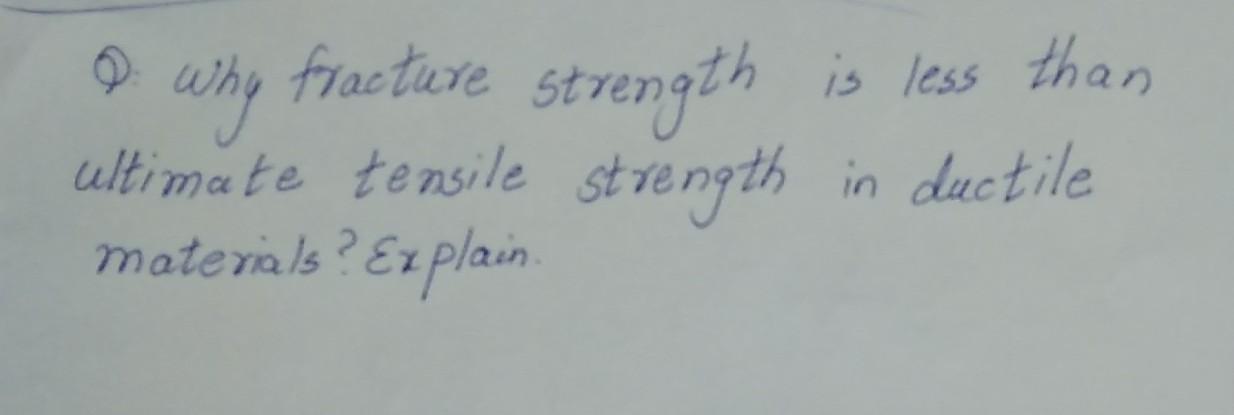 Q. Why fracture strength is less than
ultimate tensile strength in ductile
materials? Explain.